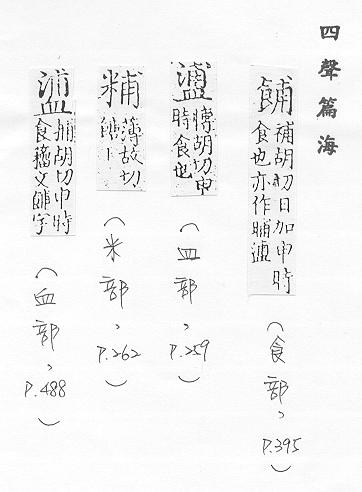 四聲篇海
餔
補胡切日加申時
食也亦作晡
（食部、P.395）
博胡切申
時食也
（皿部、P.259）
䊇
薄故切
（米部、P.262）
捕胡切申時
食籀文餔字
（血部、P.488）